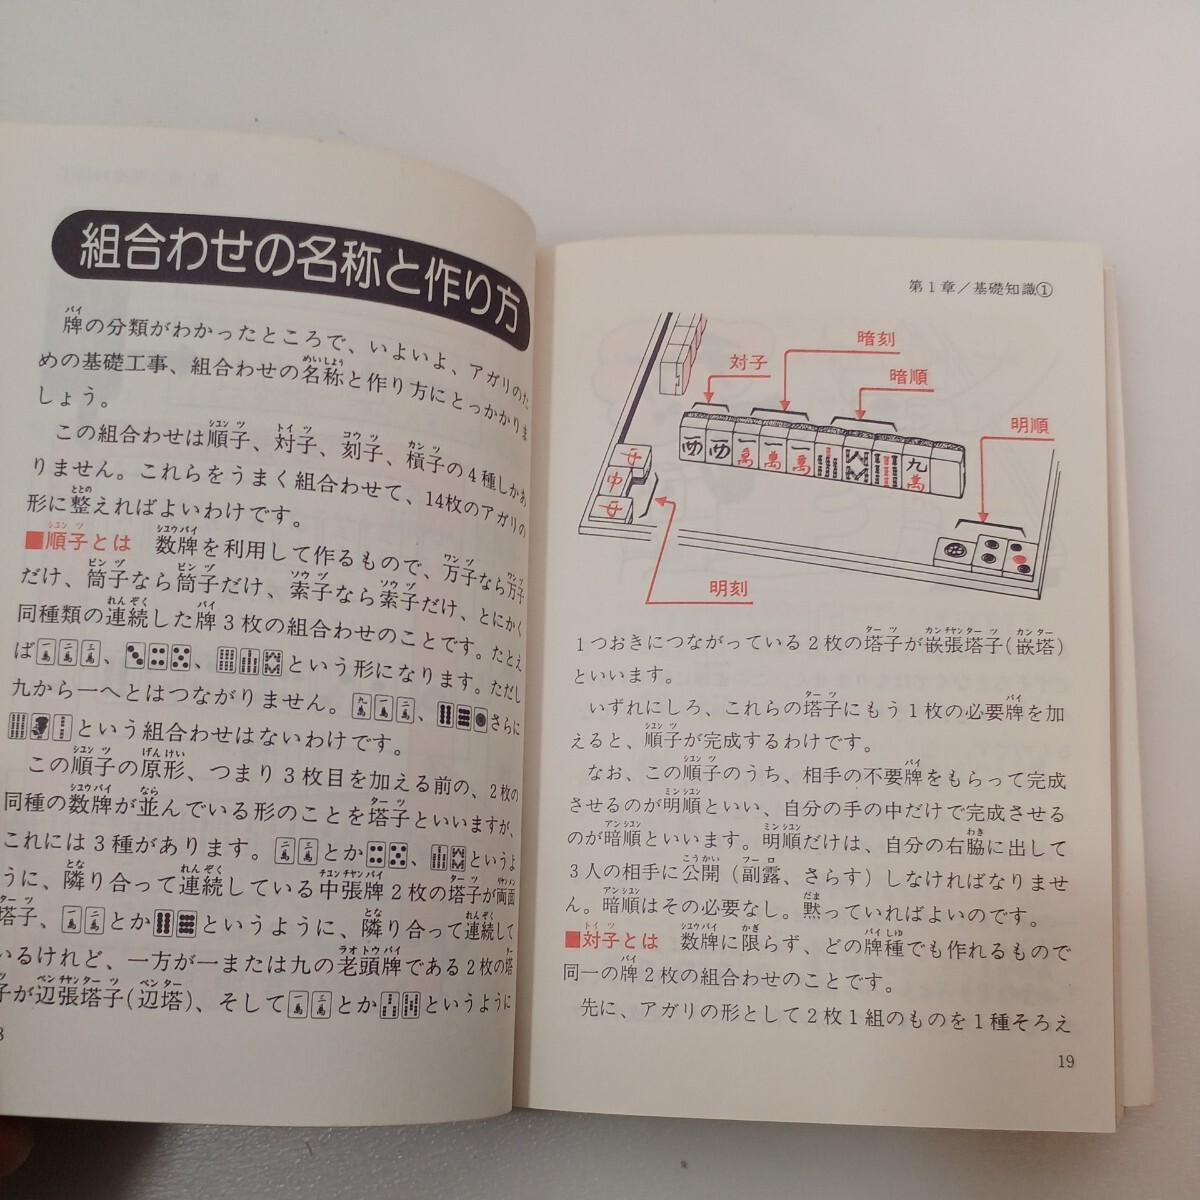 組合わせの名称と作り方
牌の分類がわかったところで、いよいよ、アガリのた
めの基礎工事、組合わせの名称と作り方にとっかかりま
しょう。
この組合わせは順子、対子、刻子、槓子の4種しかあ
りません。これらをうまく組合わせて、14枚のアガリの
形に整えればよいわけです。
■順子とは 数牌を利用して作るもので、万子なら万子
だけ、筒子なら筒子だけ、索子なら索子だけ、とにかく
同種類の連続した牌3枚の組合わせのことです。たとえ
ば一萬二萬三萬、、という形になります。ただし
九から一へとはつながりません。九萬一萬二萬、さらに
という組合わせはないわけです。
この順子の原形、つまり3枚目を加える前の、2枚の
同種の数牌が並んでいる形のことを塔子といいますが、
これには3種があります。二萬三萬とか、というよ
うに、隣り合って連続している中張牌2枚の塔子が両面
塔子、一萬二萬とかというように、隣り合って連続して
いるけれど、一方が一または九の老頭牌である2枚の塔
子が辺張塔子(辺塔)、そして一萬三萬とかというように
第1章/基礎知識①
暗刻
対子
暗順
明順
西 西 一萬 一萬 一萬 九萬
中
明刻
1つおきにつながっている2枚の塔子が嵌張塔子(嵌塔)
といいます。
いずれにしろ、これらの塔子にもう1枚の必要牌を加
えると、順子が完成するわけです。
なお、この順子のうち、相手の不要牌をもらって完成
させるのが明順といい、自分の手の中だけで完成させる
のが暗順といいます。明順だけは、自分の右脇に出して
3人の相手に公開(副露、さらす)しなければなりませ
ん。暗順はその必要なし。黙っていればよいのです。
■対子とは 数牌に限らず、どの牌種でも作れるもので
同一の牌2枚の組合わせのことです。
先に、アガリの形として2枚1組のものを1種そろえ
19